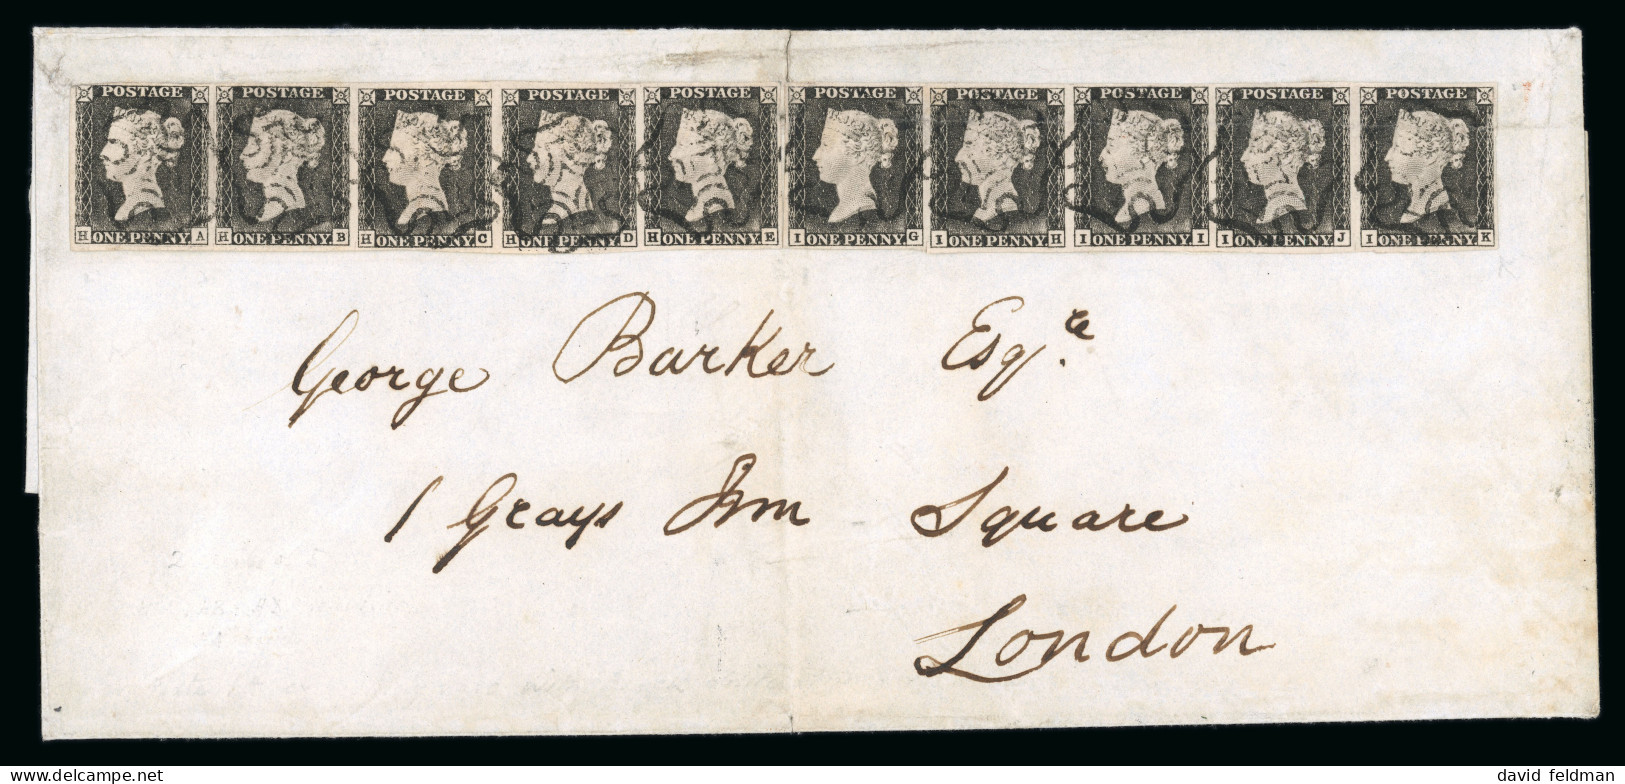 POSTAGE POSTAGE POSTAGE POSTAGE POSTAGE POSTAGE POSTAGE POSTAGE POSTAGE POSTAGE
H ONE PENNY A H ONE PENNY B H ONE PENNY C H ONE PENNY D H ONE PENNY E I ONE PENNY G I ONE PENNY H I ONE PENNY I I ONE PENNY J I ONE PENNY K
George Barker Esqre
1 Grays Inn Square
London
david feldman